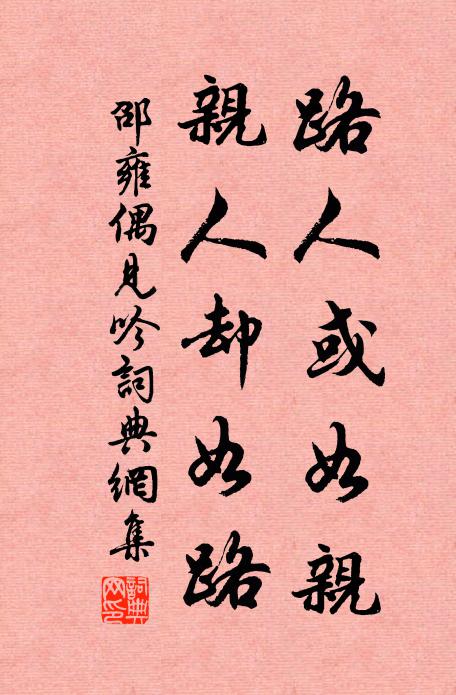 路人或如親
親人却如路
邵雍偶見吟詞典網集
詞典網印